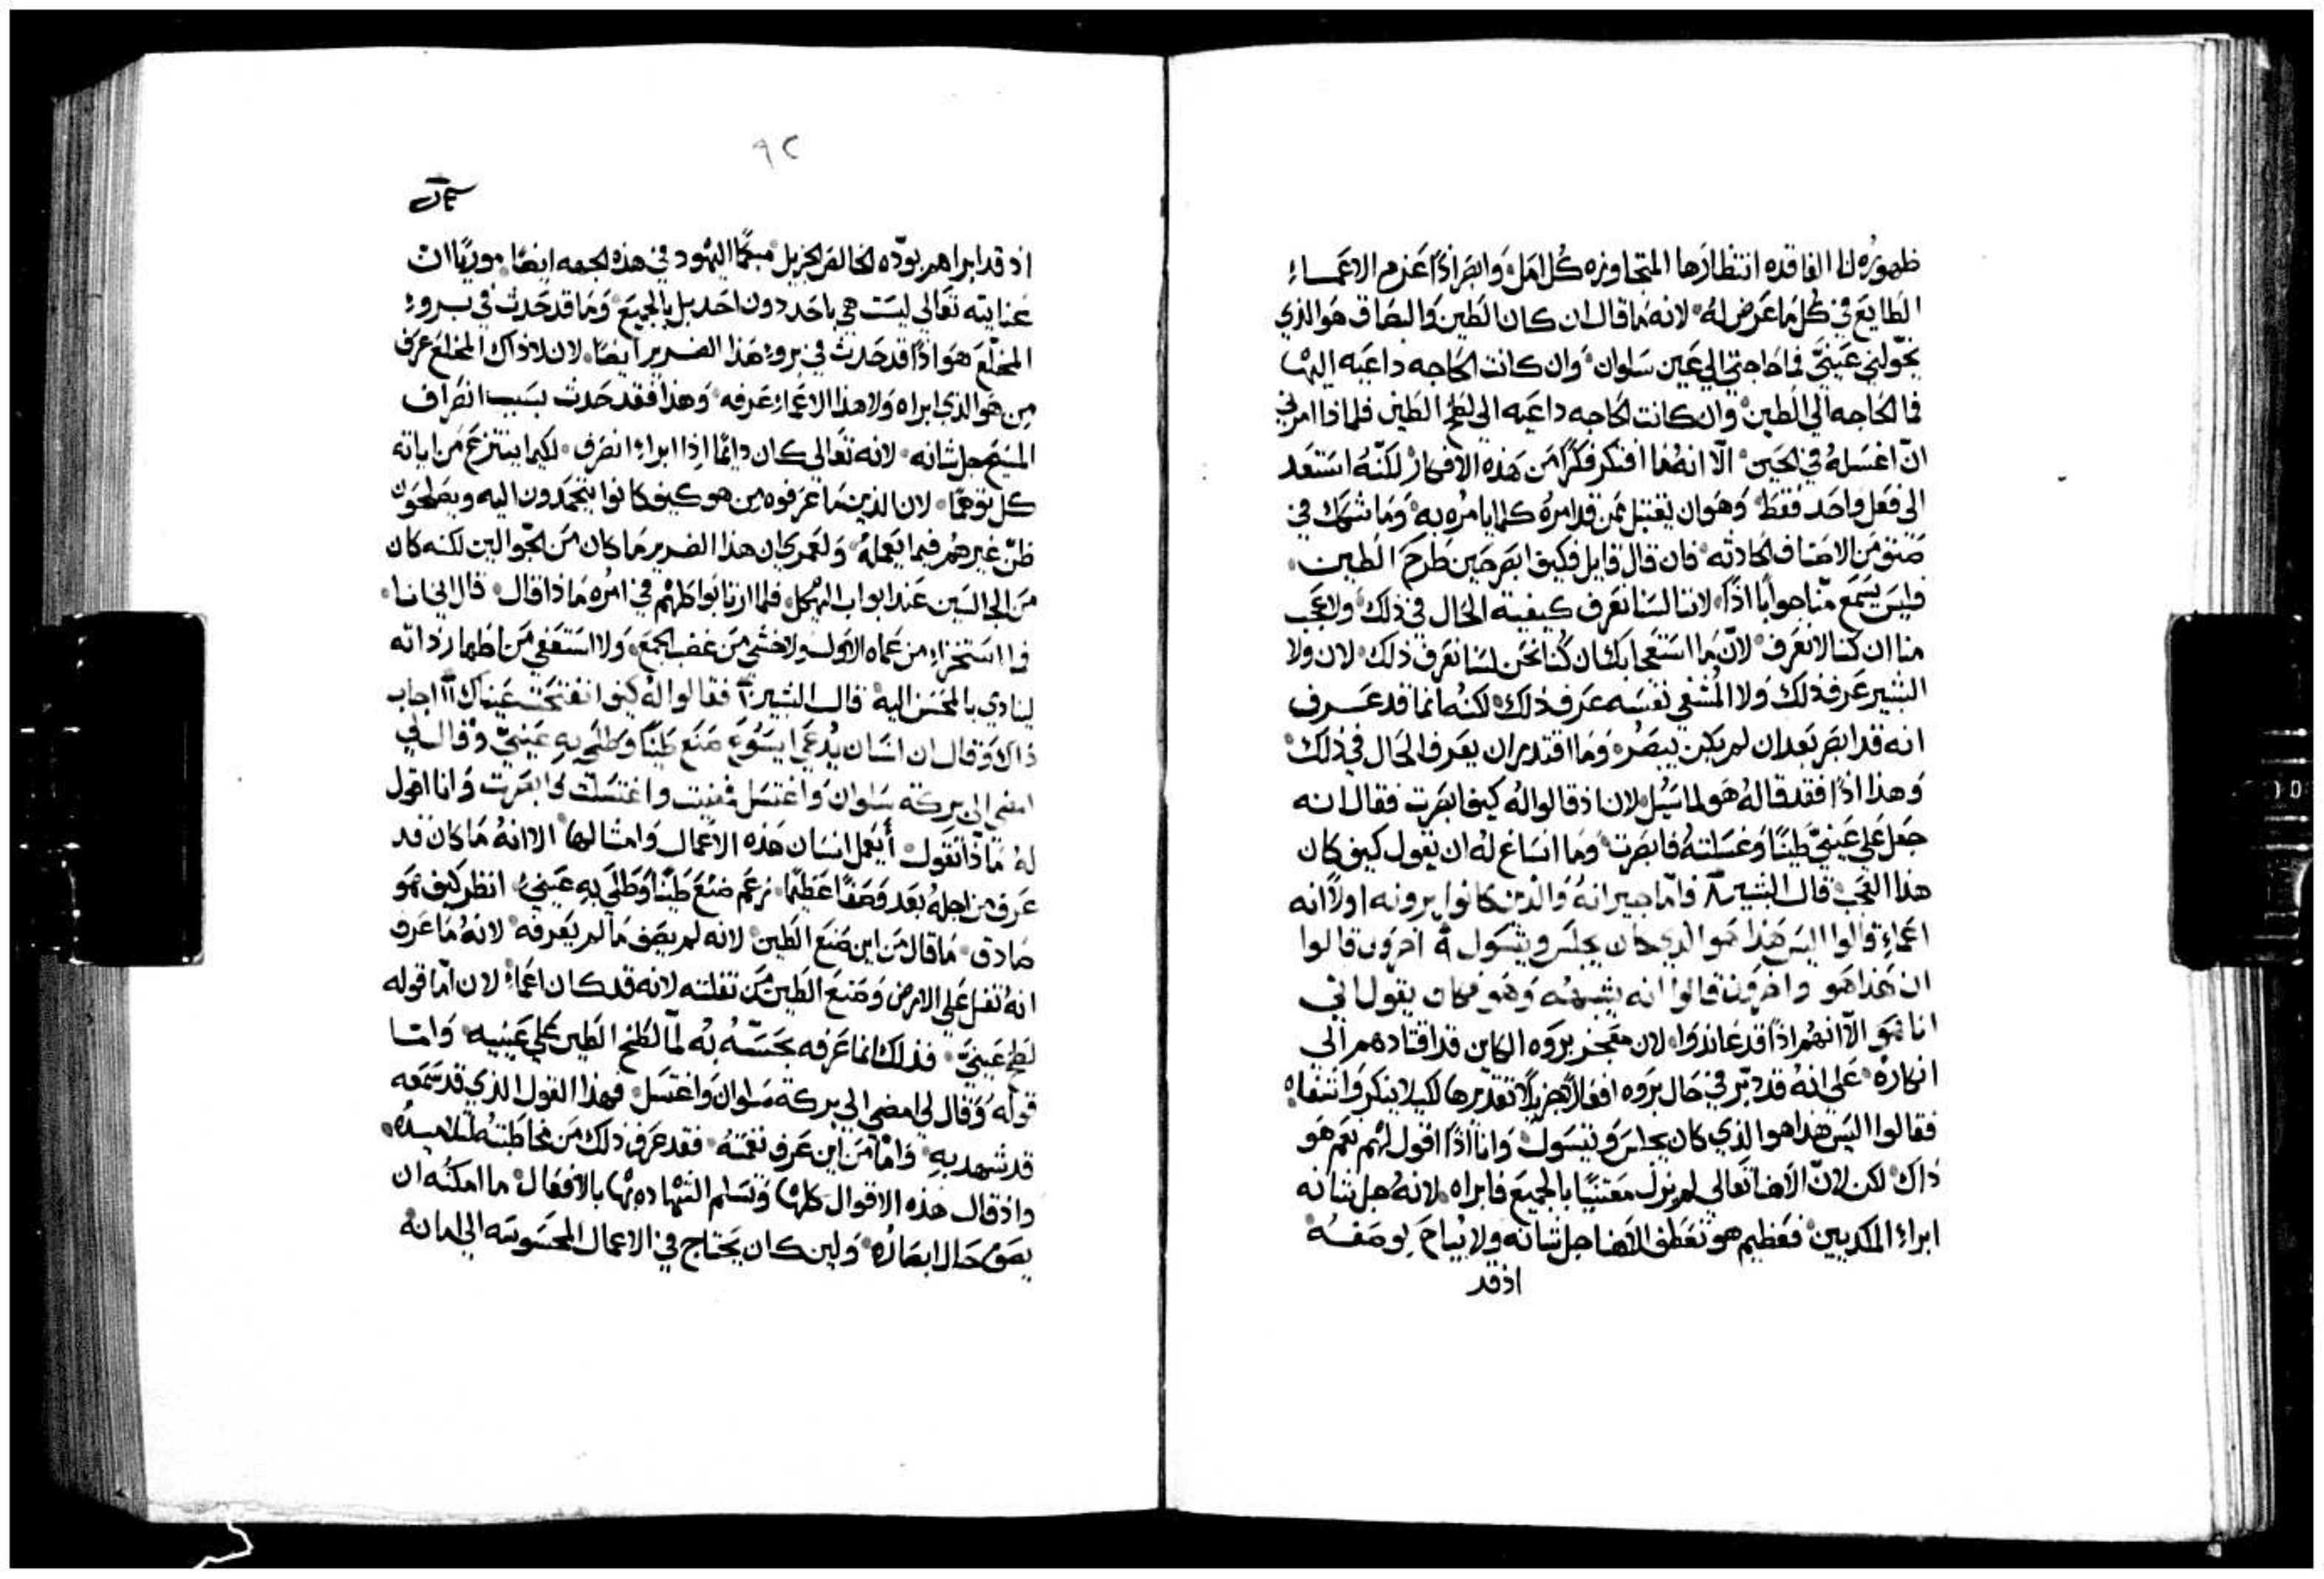 ظهوره لنا الفاقده انتظارها المتجاوزه كل امل وابصر اذًا عزم الاعماء
الطايع في كل ما عرض له لانه ما قال ان كان الطين والبصاق هو الذي
يخولني عينيّ فما حاجتي الى عين سلوان وان كانت الحاجه داعيه اليها
فما الحاجه الى الطين وان كانت الحاجه داعيه الى لطخ الطين فلماذا امرني
انّ اغسله في الحين الّا انه ما افتكر فكرًا من هذه الافكار لكنّه استعد
الى فعل واحد فقط وهو ان يقتبل ممن قد امره كلما يامره به وما شك في
صنف من الاصناف الحادثه فان قال قايل فكيف ابصر حين طرح الطين
فليس يسمع منّا جوابًا اذًا لاننا لسنا نعرف كيفية الحال في ذلك ولا عجب
منا ان كنا لا نعرف لانّ ما استعجابك ان كنا نحن لسنا نعرف ذلك لان ولا
البشير عرف ذلك ولا المشفي نفسه عرف ذلك لكنه انما قد عرف
انه قد ابصر بعد ان لم يكن يبصر وما اقتدر ان يعرف الحال في ذلك
وهذا اذًا فقد قاله هو لما سُيل لان اذ قالوا له كيف ابصرت فقال انه
جعل على عينيّ طينًا وغسلته فابصرت وما انساغ له ان يقول كيف كان
هذا العجب قال البشير ٨ فامّا جيرانه والذين كانوا يرونه اولًا انه
اعماء قالوا اليس هذا هو الذي كان يجلس ويتسول ٩ اخرون قالوا
ان هذا هو واخرون قالوا انه يشبهه وهو فكان يقول اني
انا هو الّا انهم اذًا قد عاندوا لان معجز بروه الكاين قد اقتادهم الى
انكاره على انه قد دبّر في حال بروه افعالًا جزيلًا تقديرها لكيلا ينكر وانتفاه
فقالوا اليس هذا هو الذي كان يجلس ويتسول وانا اذًا اقول لهم نعم هو
ذاك لكن لانّ الاهنا تعالى لم يزل معتنيًا بالجميع فابراه لانه جل شانه
ابراء المكديين فعظيم هو تعطف الاهنا جل شانه ولا يباح بوصفه
اذ قد
٩٢
اذ قد ابراهم بودّه الخالص الجزيل مبكمًا اليهود في هذه الجهه ايضًا موريًا ان
عنايته تعالى ليست هي باحد دون احد بل بالجميع وما قد حدث في بروء
المخلّع هو اذًا قد حدث في بروء هذا الضرير ايضًا لان لا ذاك المخلع عرف
من هو الذي ابراه ولا هذا الاعماء عرفه وهذا فقد حدث بسبب انصراف
المسيح جل شانه لانه تعالى كان دايمًا اذا ابراء انصرف لكيما ينتزع من اياته
كل توهمًا لان الذين ما عرفوه من هو كيف كانوا يتحمدون اليه ويصلحون
ظنّ غيرهم فيما يعمله ولعمري ان هذا الضرير ما كان من الجوالين لكنه كان
من الجالسين عند ابواب الهيكل فلما ارتابوا كلهم في امره ماذا قال قال اني انا
فما استخزاء من عماه الاول ولا خشي من غضب الجمع ولا استعفي من اظهار ذاته
لينادي بالمحسن اليه قال البشير ١٠ فقالوا له كيف انفتحت عيناك ١١ اجاب
ذاك وقال ان انسان يُدعى ايسوع صنع طينًا وطلى به عينيّ وقال لي
امضي الى بركة سلوان واغتسل فمضيت واغتسلت فابصرت وانا اقول
له ماذا تقول أيعمل انسان هذه الاعمال وامثالها الا انه ما كان قد
عرف من اجله بعد وصفًا عظيمًا نزعم صنع طينًا وطلى به عينيّ انظر كيف هو
صادق ما قال من اين صنع الطين لانه لم يصف ما لم يعرفه لانه ما عرف
انه تفل على الارض وصنع الطين من تفلته لانه قد كان اعماء لان امّا قوله
لطخ عينيّ فذلك انما عرفه بحسّه به لمّا لطخ الطين على عينيه وامّا
قوله وقال لي امضي الى بركة سلوان واغتسل فهذا القول الذي قد سمعه
قد شهد به وامّا من اين عرف نغمته فقد عرف ذلك من مخاطبته لتلاميذه
واذ قال هذه الاقوال كلها وتسلم الشهاده بها بالافعال ما امكنه ان
يصف حال ابصاره ولين كان يحتاج في الاعمال المحسوسه الى امانه